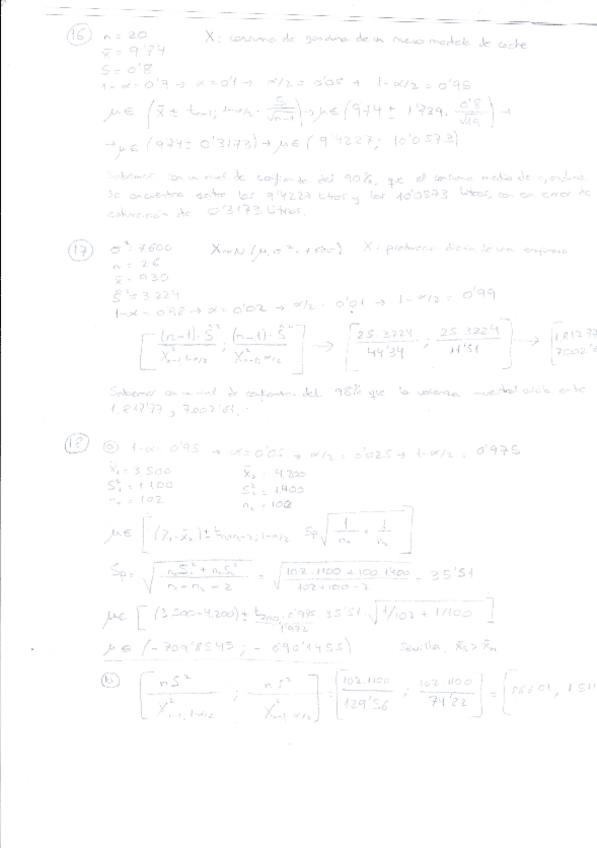 16 n = 20 X: consumo de gasolina de un nuevo modelo de coche
x̄ = 9'74
S = 0'8
1-α = 0'9 → α = 0'1 → α/2 = 0'05 → 1-α/2 = 0'95
μ ∈ (x̄ ± t n-1; 1-α/2 · S/√n-1) → μ ∈ (9'74 ± 1'729 · 0'8/√19) →
→ μ ∈ (9'74 ± 0'3173) → μ ∈ (9'4227; 10'0573)
Sabemos con un nivel de confianza del 90%, que el consumo medio de gasolina
se encuentra entre los 9'4227 litros y los 10'0573 litros, con un error de
estimación de 0'3173 litros.
17 σ² X ~ N(μ, σ² X: diaria de una empresa
n = 26
x̄ = 930
Ŝ² = 3.224
1-α = 0'98 → α = 0'02 → α/2 = 0'01 → 1-α/2 = 0'99
[(n-1)·Ŝ² / X² n-1; 1-α/2 ; (n-1)·Ŝ² / X² n-1; α/2] → [25·3224 / 44'34 ; 25·3224 / 11'51] → [1.81777
7002'61
Sabemos con un nivel de confianza del 98% que la varianza entre
1.817'77 y 7002'61.
18 a) 1-α = 0'95 → α = 0'05 → α/2 = 0'025 → 1-α/2 = 0'975
x̄₁ = 3.500 x̄₂ = 4.200
S₁² = 1.100 S₂² = 1.400
n₁ = 102 n₂ = 100
μ ∈ [(x̄₁ - x̄₂) ± t n₁+n₂-2; 1-α/2 Sp √1/n₁ + 1/n₂]
Sp = √n₁S₁² + n₂S₂² / n₁ + n₂ - 2 = √102·1100 + 100·1400 / 102 + 100 - 2 = 35'51
μ ∈ [(3.500 - 4.200) ± t 200; 0'975 35'51 · √1/102 + 1/100]
1'972
μ ∈ (-709'8545; -690'1455) Sevilla,
b) [nS² / X² n-1; 1-α/2 ; nS² / X² n-1; α/2] = [102·1100 / 129'56 ; 102·1100 / 74'22] = [